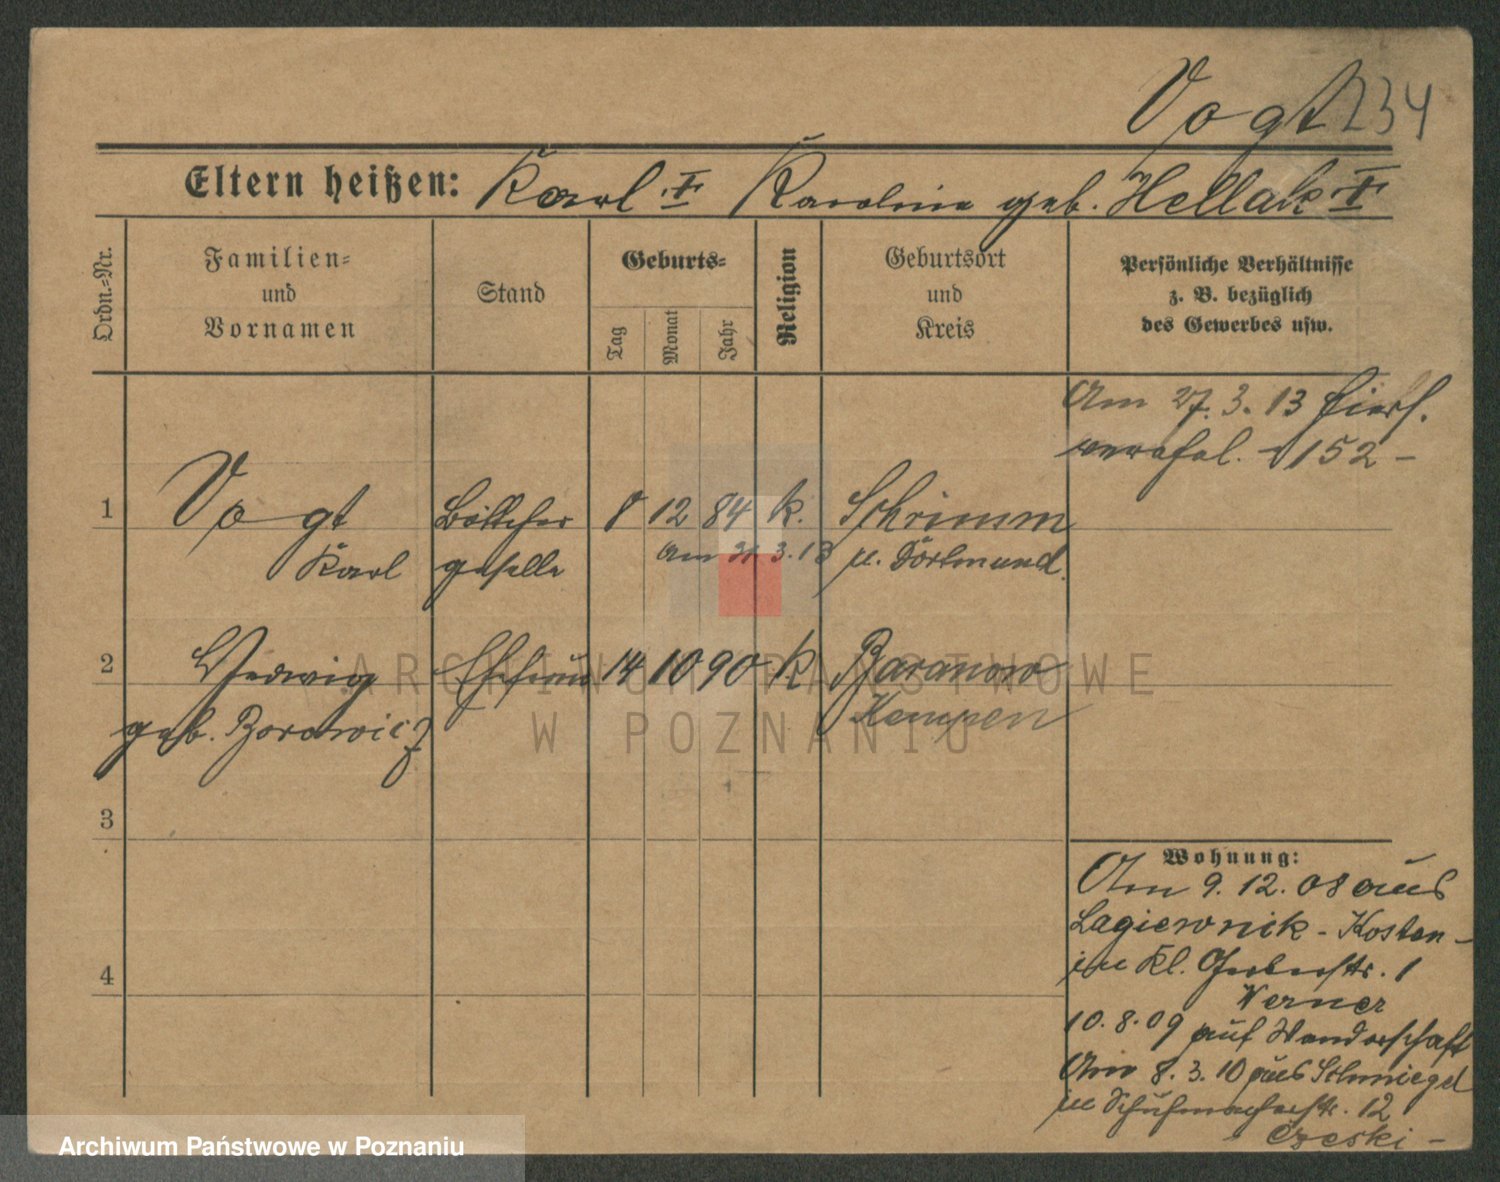 Vogt 234
Eltern heißen: Karl † Karoline geb. Hellak †
Ordn.-Nr.
Familien-
und
Vornamen
Stand
Geburts-
Tag
Monat
Jahr
Religion
Geburtsort
und
Kreis
Persönliche Verhältnisse
z. B. bezüglich
des Gewerbes usw.
Am 27. 3. 13
152 -
1 Vogt Böttcher 8 12 84 k. Schrimm
Karl geselle am 31. 3. 13 u. Dortmund.
2 Hedwig Ehefrau 14 10 90 k Baranow
geb. Borowicz Kempen
3
4
Wohnung:
Am 9. 12. 08 aus
Lagiewnik - Kosten -
in Kl. Gerberstr. 1
Werner
10. 8. 09 auf Wanderschaft
Am 8. 3. 10 aus Schmiegel
in Schuhmacherstr. 12
Czeski -
ARCHIWUM PAŃSTWOWE
W POZNANIU
Archiwum Państwowe w Poznaniu